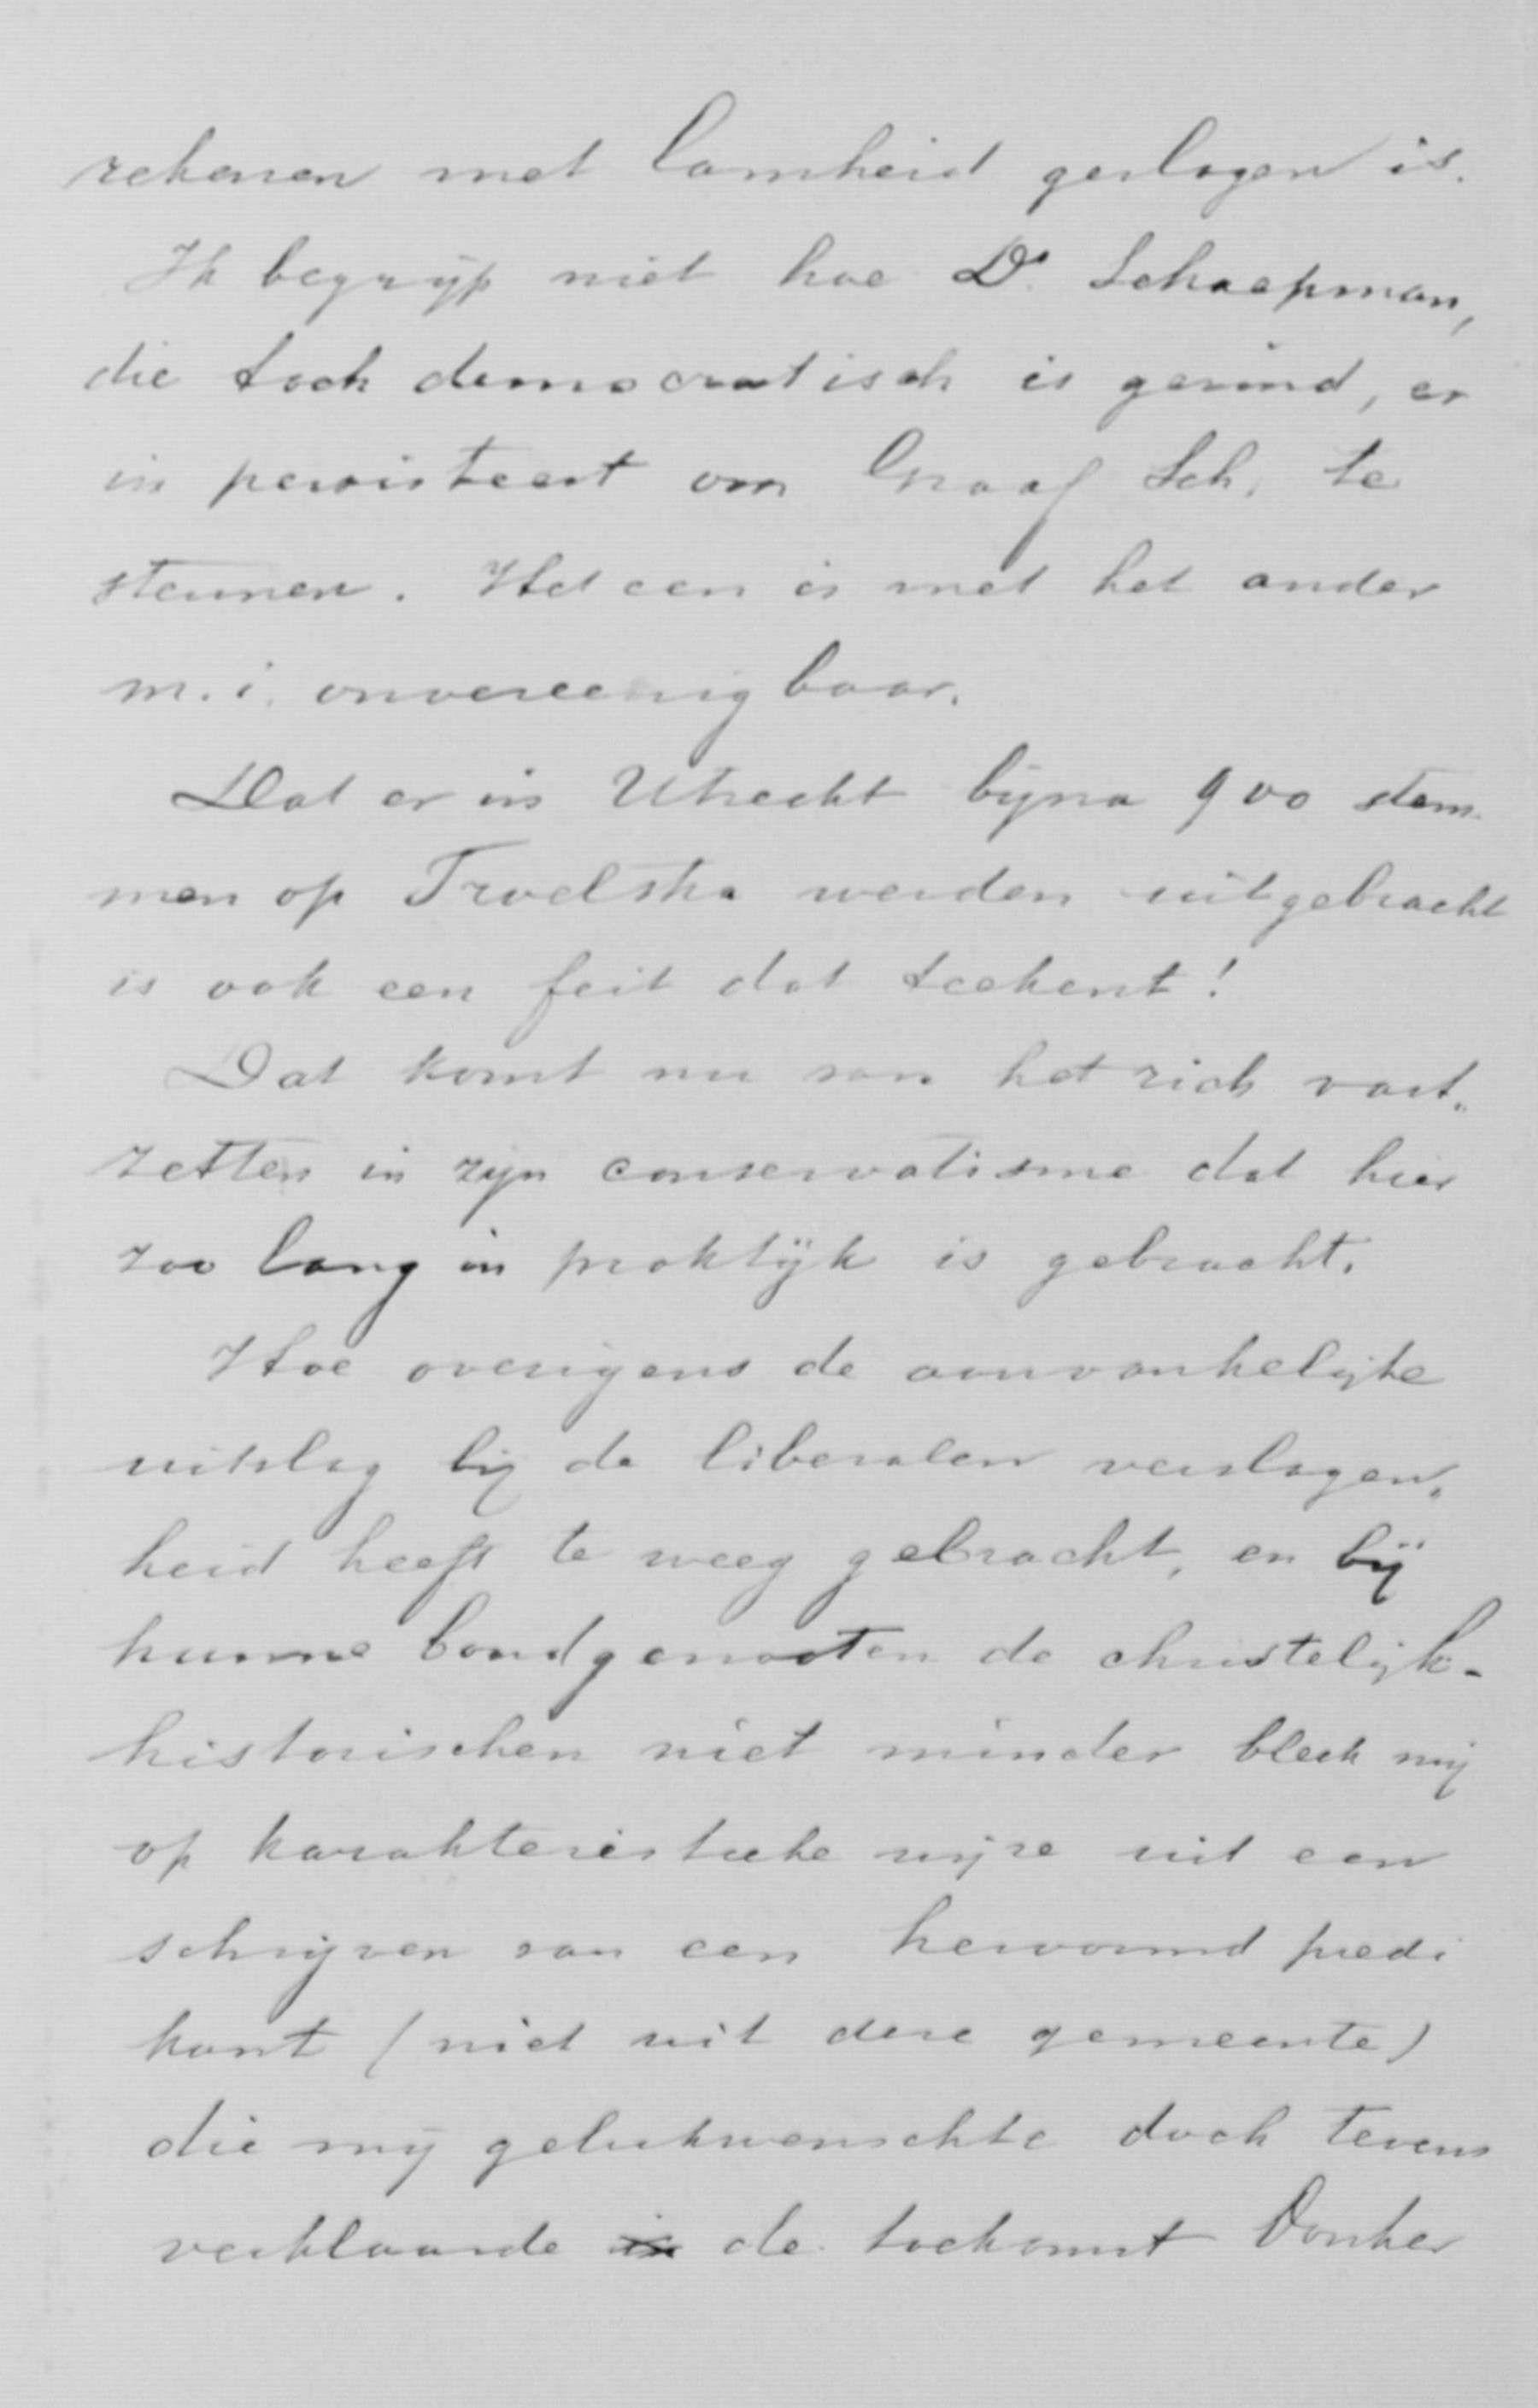 rekenen met lamheid geslagen is.
Ik begrijp niet hoe Dr. Schaepman,
die toch democratisch is gezind, er
in persisteert om Graaf Sch. te
steunen. Het een is met het ander
m.i. onvereenigbaar.
Dat er in Utrecht bijna 900 stem-
men op Troelstra werden uitgebracht
is ook een feit dat teekent!
Dat komt nu van het zich vast-
zetten in zijn conservatisme dat hier
zoo lang in praktijk is gebracht.
Hoe overigens de aanvankelijke
uitslag bij de liberalen verslagen-
heid heeft te weeg gebracht, en bij
hunne bondgenooten de christelijk-
historischen niet minder bleek mij
op karakteristieke wijze uit een
schrijven van een hervormd predi
kant (niet uit deze gemeente)
die mij gelukwenschte doch tevens
verklaarde de toekomst donker